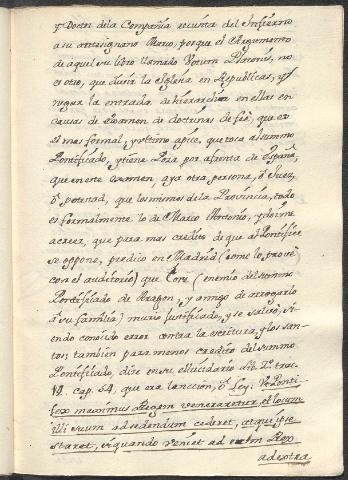 y Doctor dela Compañia resucita del Infierno
a su antesignano Marco, porque el Argumento
de aquel su libro llamado Votum Platonis, no
es otro, que dividir la Iglesia en Republicas, y
negar la entrada de hierarchia en ellas en
causas de examen de doctrinas de feè, que es
el mas formal, y ultimo apice, que toca al summo
Pontificado, y tiene Poza por afrenta de España,
que en este examen, aya otra persona, ò Juez,
ò potestad, que los mismos de la Provincia, todo
es formalmente lo de Marco Antonio, y dame
a creer, que para mas credito de que al Pontifice
se oppone, predicò en Madrid (como lo, provè
con el auditorio) que Core (enemigo del summo
Pontificado de Aaron, y amigo de arrogarlo
à su familia) murio justificado, y se salvò, si-
endo conocido error contra la escritura, y los san-
tos; tambien para menos credito del summo
Pontificado, dice en su elucidario lib. 2. trac.
14. cap. 54, que era lancion, ò Ley: Ut Ponti-
fex maximus Regem veneraretur, et locum
illi suum ad sedendum cederet, atque ipse
staret, siquando veniet ad eum Rex
ad extra